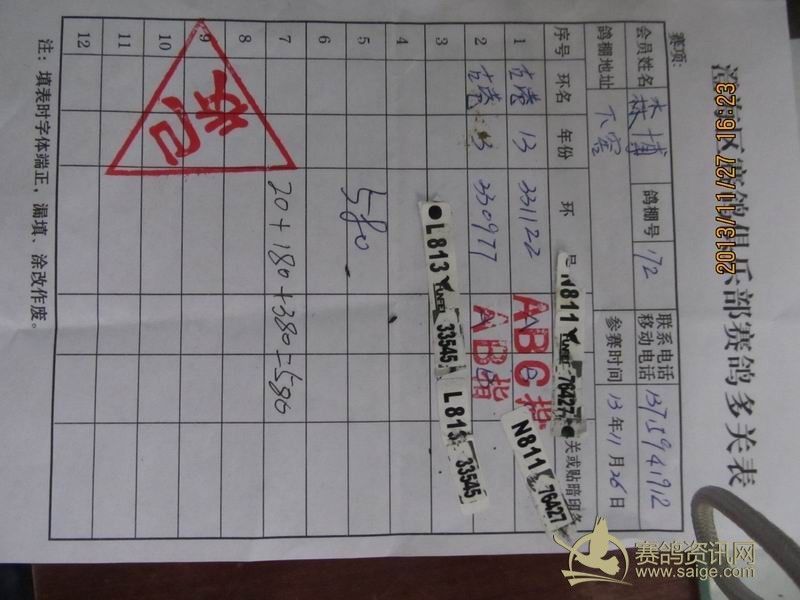 区赛鸽俱乐部赛鸽多关表
赛项:
会员姓名 林博 鸽棚号 172 联系电话 移动电话 13759941912
鸽棚地址 下窖 参赛时间 13年11月26日
序号 环名 年份 环 号 关或贴暗印条
1 古港 13 331122 ABC指
2 古港 13 330977 AB指
3
4
5 580
6
7 20+180+380=580
8
9
10
11
12
N811 76427
N811 76427
L813 33545
L813 33545
已
注:填表时字体端正,漏填、涂改作废。
2013/11/27 16:23
赛鸽资讯网
www.saige.com